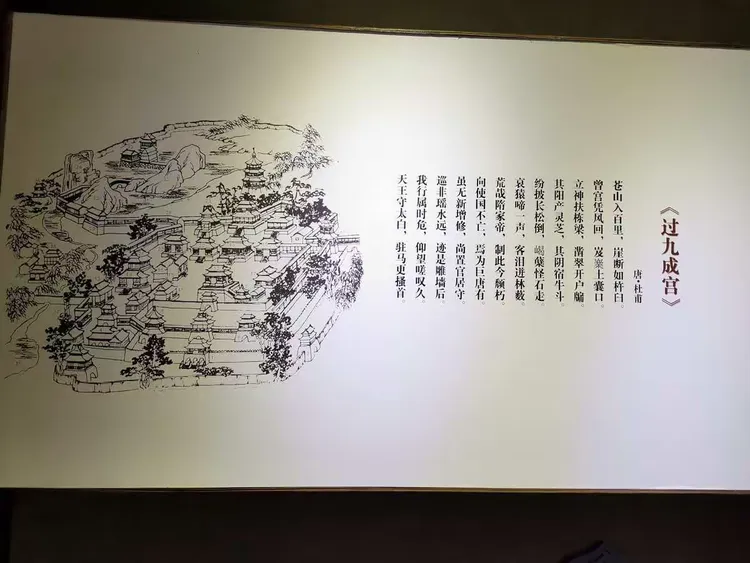 《过九成宫》
唐·杜甫
苍山入百里，崖断如杵臼。
曾宫凭风回，岌嶪土囊口。
立神扶栋梁，凿翠开户牖。
其阳产灵芝，其阴宿牛斗。
纷披长松倒，巘怪石走
哀猿啼一声，客泪迸林薮。
荒哉隋家帝，制此今颓朽。
向使国不亡，焉为巨唐有。
虽无新增修，尚置官居守。
巡非瑶水远，迹是雕墙后。
我行属时危，仰望嗟叹久。
天王守太白，驻马更搔首。